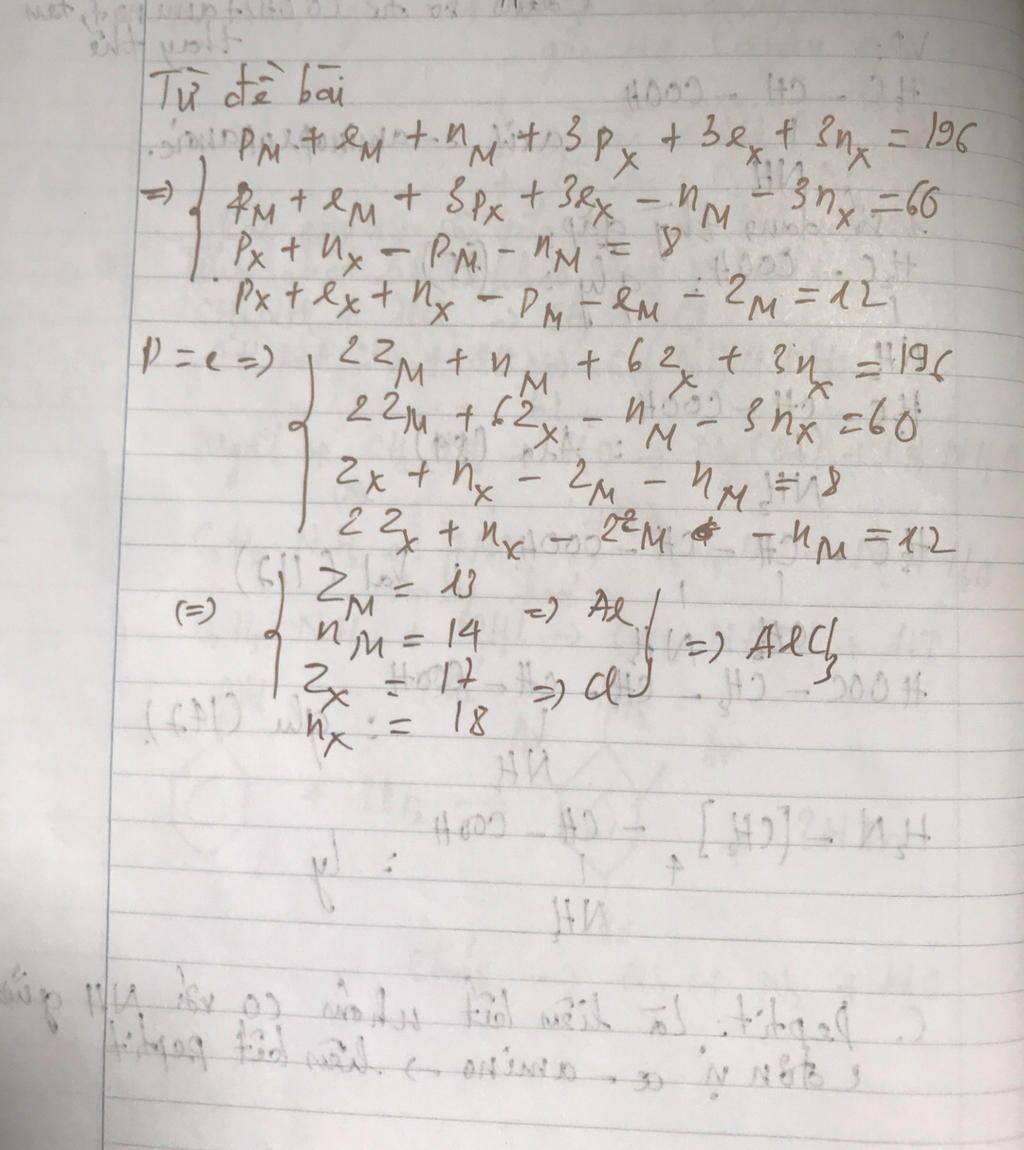 Từ đề bài
p_M + e_M + n_M + 3p_X + 3e_X + 3n_X = 196
=> p_M + e_M + 3p_X + 3e_X - n_M - 3n_X = 60
p_X + n_X - p_M - n_M = 8
p_X + e_X + n_X - p_M - e_M - 2_M = 12
p = e => 2Z_M + n_M + 6Z_X + 3n_X = 196
2Z_M + 6Z_X - n_M - 3n_X = 60
Z_X + n_X - Z_M - n_M = 8
2Z_X + n_X - 2Z_M - n_M = 12
(=) Z_M = 13 => Al
n_M = 14 => AlCl_3
Z_X = 17 => Cl
n_X = 18